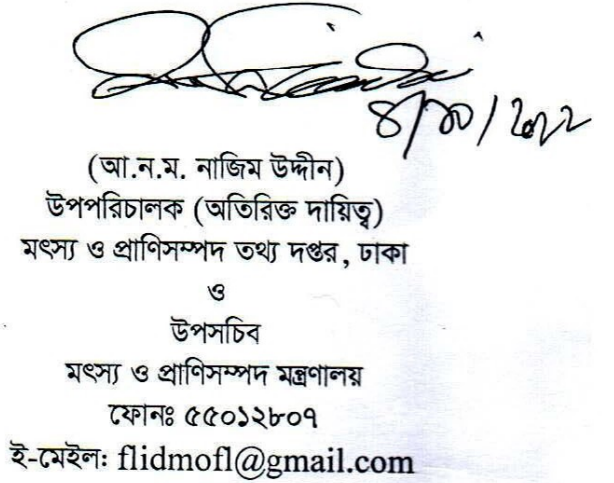 ৪/১০/২০২২
(আ.ন.ম. নাজিম উদ্দীন)
উপপরিচালক (অতিরিক্ত দায়িত্ব)
মৎস্য ও প্রাণিসম্পদ তথ্য দপ্তর, ঢাকা
ও
উপসচিব
মৎস্য ও প্রাণিসম্পদ মন্ত্রণালয়
ফোনঃ ৫৫০১২৮০৭
ই-মেইল: flidmofl@gmail.com